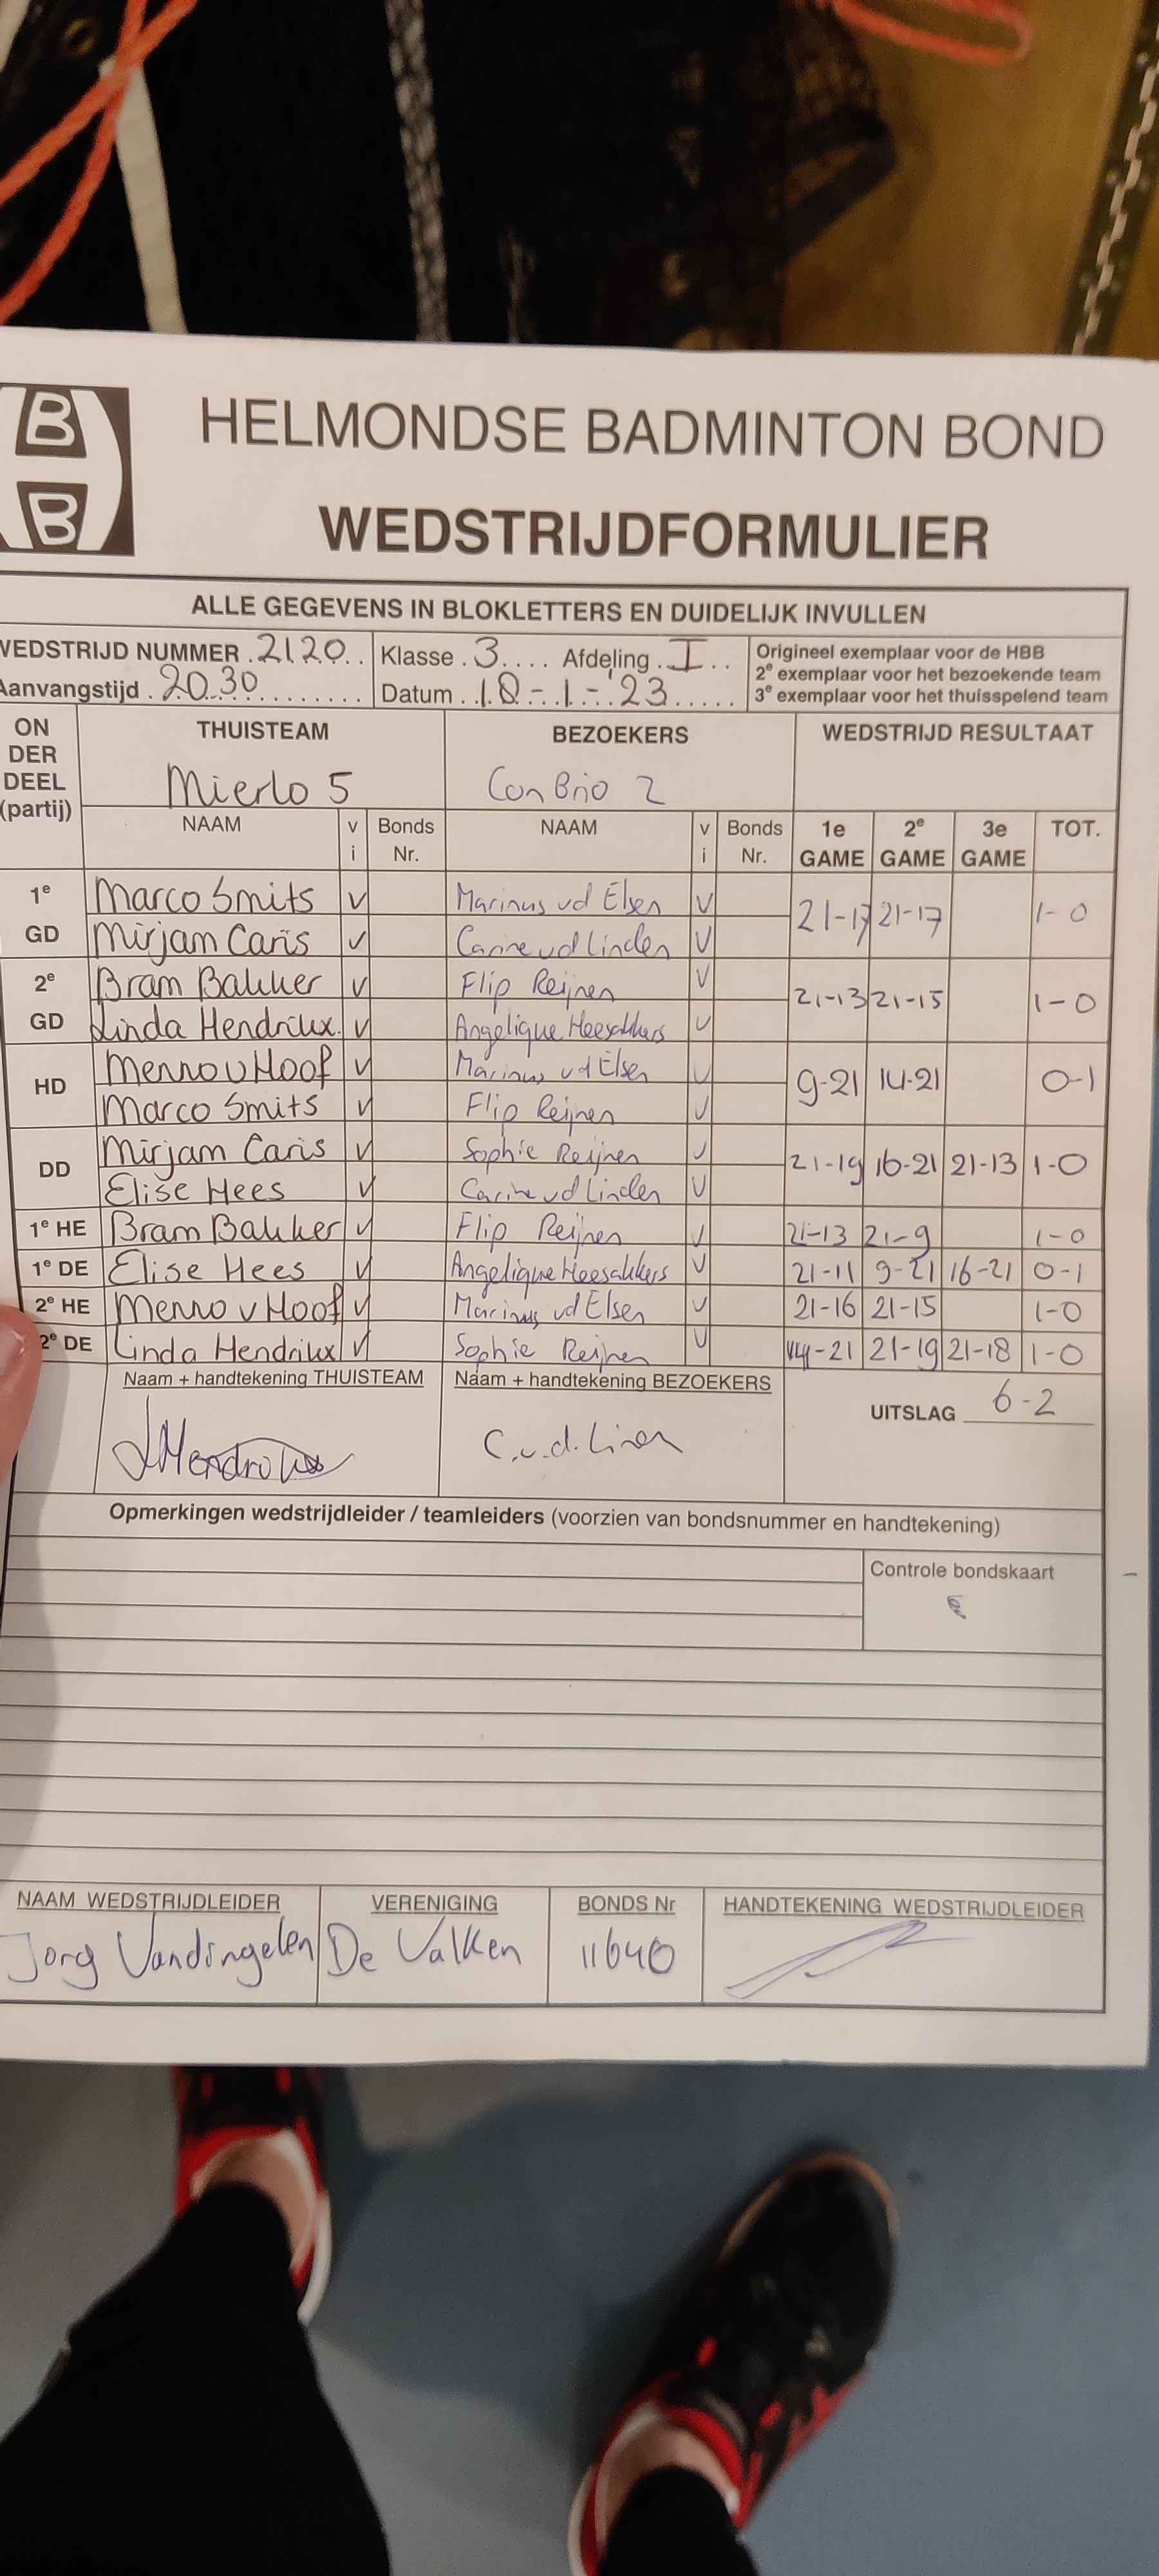 B
B
HELMONDSE BADMINTON BOND
WEDSTRIJDFORMULIER
ALLE GEGEVENS IN BLOKLETTERS EN DUIDELIJK INVULLEN
WEDSTRIJD NUMMER 2120 Klasse 3 Afdeling I Origineel exemplaar voor de HBB
2e exemplaar voor het bezoekende team
Aanvangstijd 20.30 Datum 18-1-'23 3e exemplaar voor het thuisspelend team
ON DER DEEL (partij) THUISTEAM BEZOEKERS WEDSTRIJD RESULTAAT
Mierlo 5 Con Brio 2
NAAM v i Bonds Nr. NAAM v i Bonds Nr. 1e GAME 2e GAME 3e GAME TOT.
1e GD Marco Smits v Marinus vd Elsen v 21-17 21-17 1-0
Mirjam Caris v Carine vd Linden v
2e GD Bram Bakker v Flip Reijnen v 21-13 21-15 1-0
Linda Hendrikx v Angelique Heesakkers v
HD Menno v Hoof v Marinus vd Elsen v 9-21 14-21 0-1
Marco Smits v Flip Reijnen v
DD Mirjam Caris v Sophie Reijnen v 21-19 16-21 21-13 1-0
Elise Hees v Carine vd Linden v
1e HE Bram Bakker v Flip Reijnen v 21-13 21-9 1-0
1e DE Elise Hees v Angelique Heesakkers v 21-11 9-21 16-21 0-1
2e HE Menno v Hoof v Marinus vd Elsen v 21-16 21-15 1-0
2e DE Linda Hendrikx v Sophie Reijnen v 21-19 21-18 1-0
Naam + handtekening THUISTEAM Naam + handtekening BEZOEKERS UITSLAG 6-2
C.v.d. Linen
Opmerkingen wedstrijdleider / teamleiders (voorzien van bondsnummer en handtekening)
Controle bondskaart
NAAM WEDSTRIJDLEIDER VERENIGING BONDS Nr HANDTEKENING WEDSTRIJDLEIDER
Jorg Vandingelen De Valken 11640